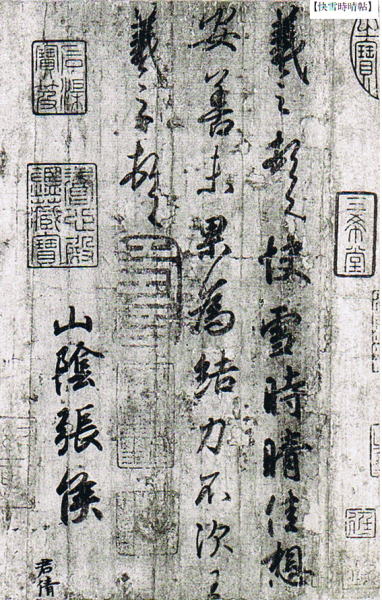 【快雪時晴帖】
羲之頓首快雪時晴佳想
安善未果為結力不次王
羲之頓首
山陰張侯
君倩
三希堂
石渠寶笈
養心殿鑑藏寶